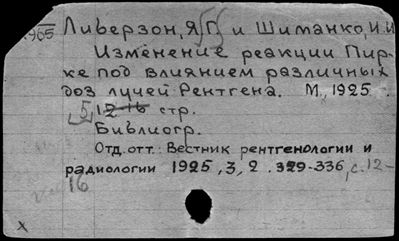 1965 Ливерзон, Я.Г. и Шиманко, И.И
Изменение реакции Пир-
ке под влиянием различных
доз лучей Рентгена. М, 1925.
[5] 12-16 стр.
Библиогр.
Отд. отт.: Вестник рентгенологии и
радиологии 1925, 3, 2. 329-336, с. 12-
16
x